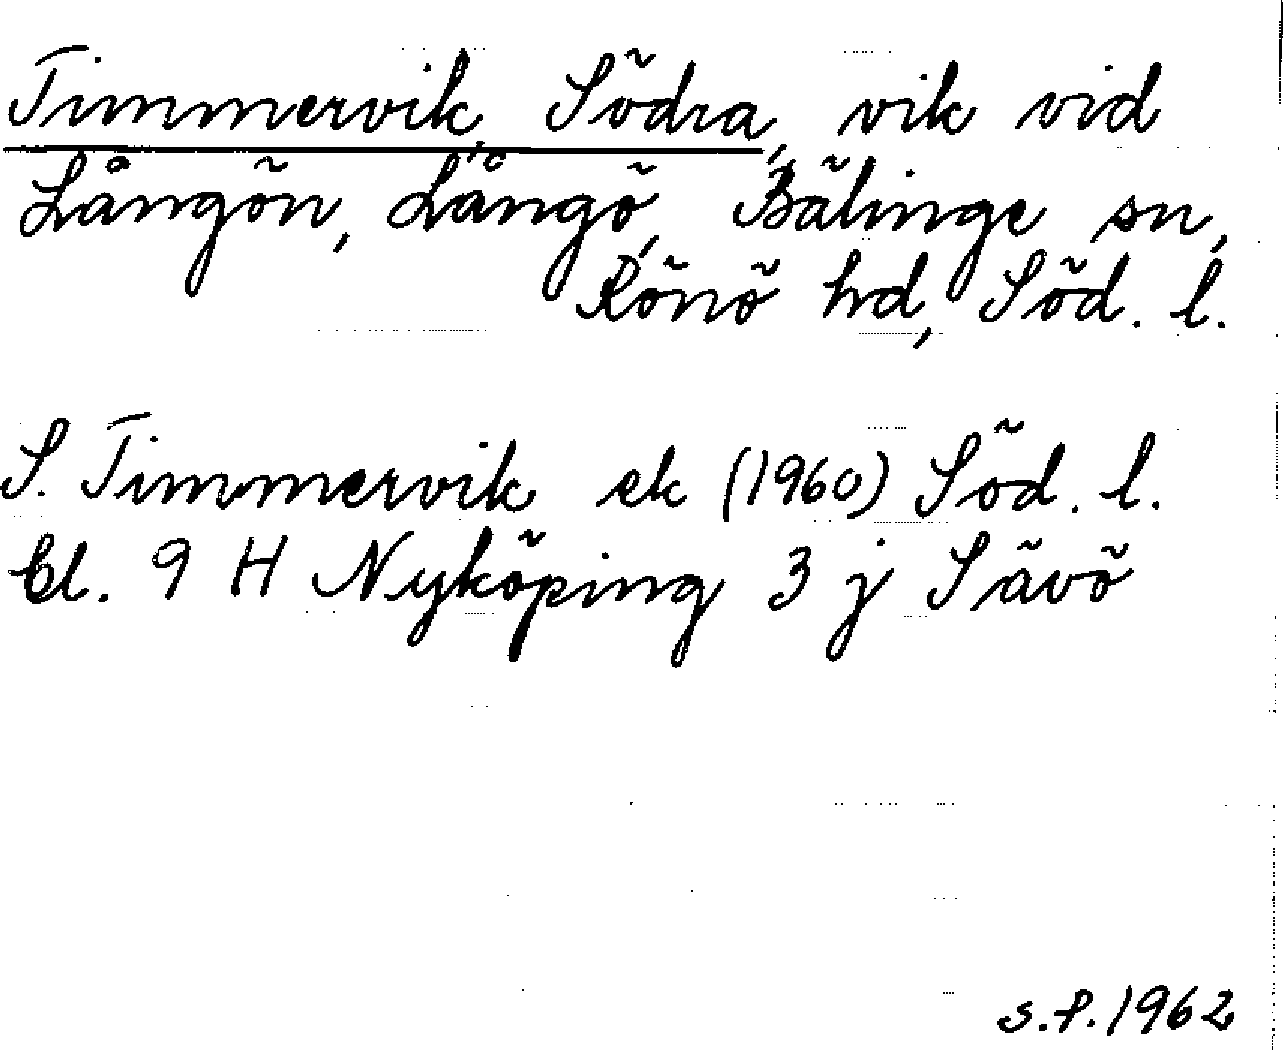 Timmervik, Södra, vik vid
Långön, Långö, Bälinge sn,
Rönö hd, Söd. l.
S. Timmervik ek (1960) Söd. l.
Bl. 9 H Nyköping 3 j Sävö
s.f. 1962